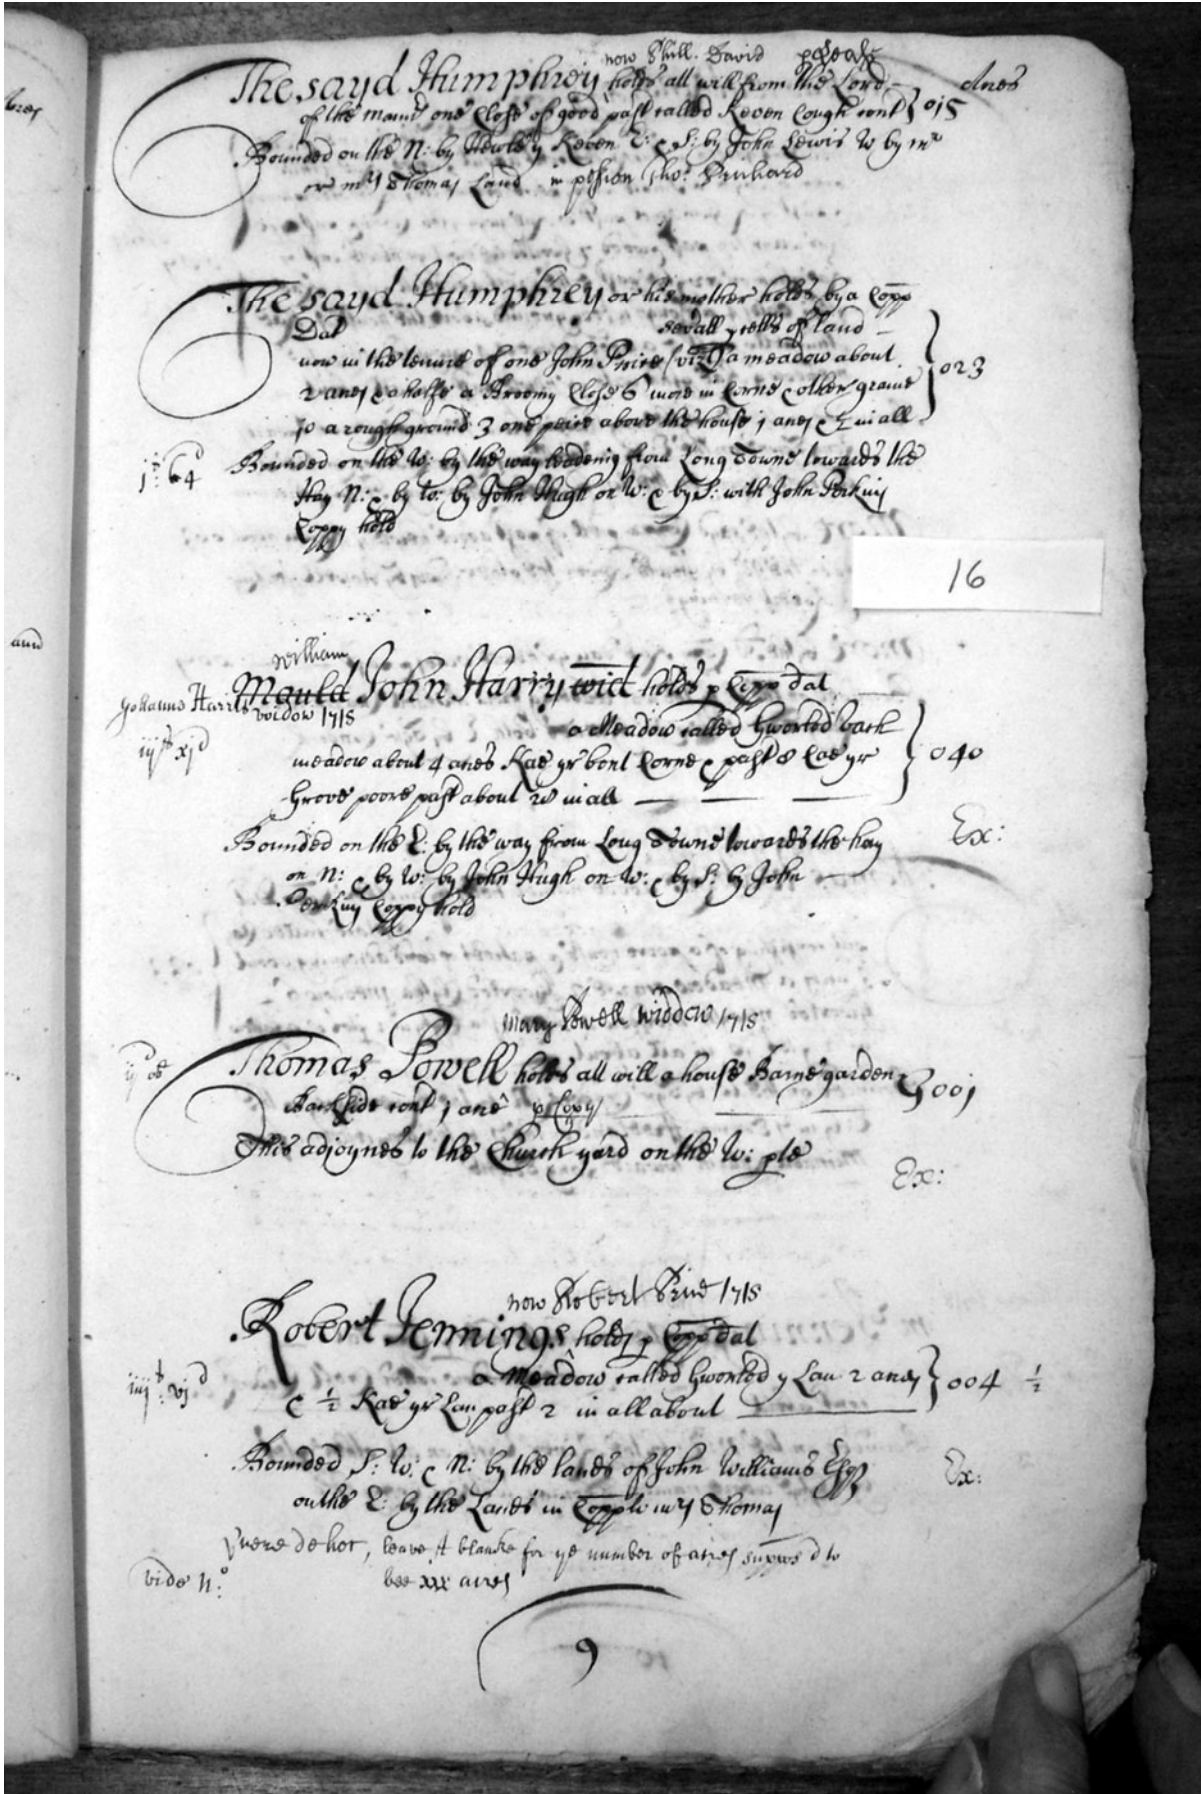 now Phill. David
The sayd Humphrey holds att will from the Lord Acres
of the mann^r one Close of good past called Keven Cough cont } 015
Bounded on the N: by Hewle y Keven E: & S: by John Lewis W by m^r
or m^rs Thomas Land in possion Tho: Prichard
The sayd Humphrey or his mother holds by a Copp
Dat sev̄all p̱cells of land
now in the tenure of one John Price (vizt) a meadow about } 023
2 acres & a halfe a Broomy Close 6 more in Corne & other graine
10 a rough ground 3 one peice above the house 1 acres & ½ in all
1^s: 6^d 4
Bounded on the W: by the way leadeing from Long Towne towards the
Hay N: & by W: by John Hugh on W: & by S: with John Perkins
Coppy hold
16
and
William
Mauld John Harry wid holds p Copp dat
Johanna Harris widow 1718
a Meadow called Gworlod bach
iij^s xj^d
meadow about 4 acres Kae yr bont Corne & past 8 Cae yr } 040
Grove poore past about 28 in all
Bounded on the E: by the way from Long Towne towards the hay Ex:
on N: & by W: by John Hugh on W: & by S: by John
Perkins Coppy hold
Mary Powell widdow 1718
Thomas Powell holds att will a house Barne garden & } 001
Backside cont 1 acre p Copy
This adjoynes to the Church yard on the W: p̱te
Ex:
now Robert Prise 1718
Robert Jennings holds p Copp dat
a Meadow called Gworlod y Lan 2 acres } 004 ½
iiij^s: vj^d
& ½ Kae yr Lan past 2 in all about
Bounded S: W: & N: by the lands of John Williams Esq^r Ex:
on the E: by the Lands in Copp to m^rs Thomas
Quere de hoc, leave it blanke for ye number of acres suppos'd to
vide N:^o bee xxx acres
9